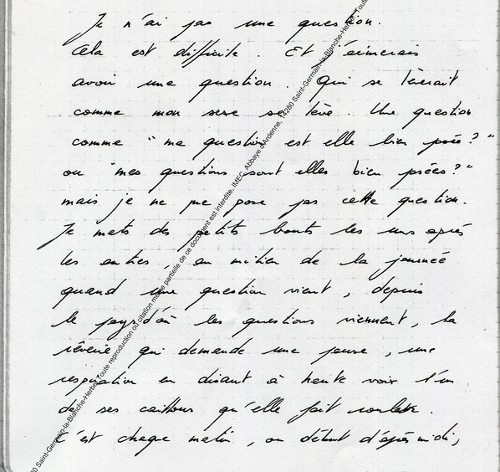 Je n'ai pas une question.
Cela est difficile Et j'aimerais
avoir une question. Qui se lèverait
comme mon sexe se lève. Une question
comme "ma question est elle bien posée?"
ou "mes questions sont elles bien posées?"
mais je ne me pose pas cette question.
Je mets des petits bouts les uns après
les autres, au milieu de la journée
quand une question vient, depuis
le pays d'où les questions viennent, la
rêverie qui demande une pause, une
respiration en disant à haute voix l'un
de ses cailloux qu'elle fait rouler.
C'est chaque matin, ou début d'après midi,
Saint-Germain-la-Blanche-Herbe. Toute reproduction ou citation même partielle de ce document est interdite. IMEC, Abbaye d'Ardenne, 14280 Saint-Germain-la-Blanche-Herbe. Toute